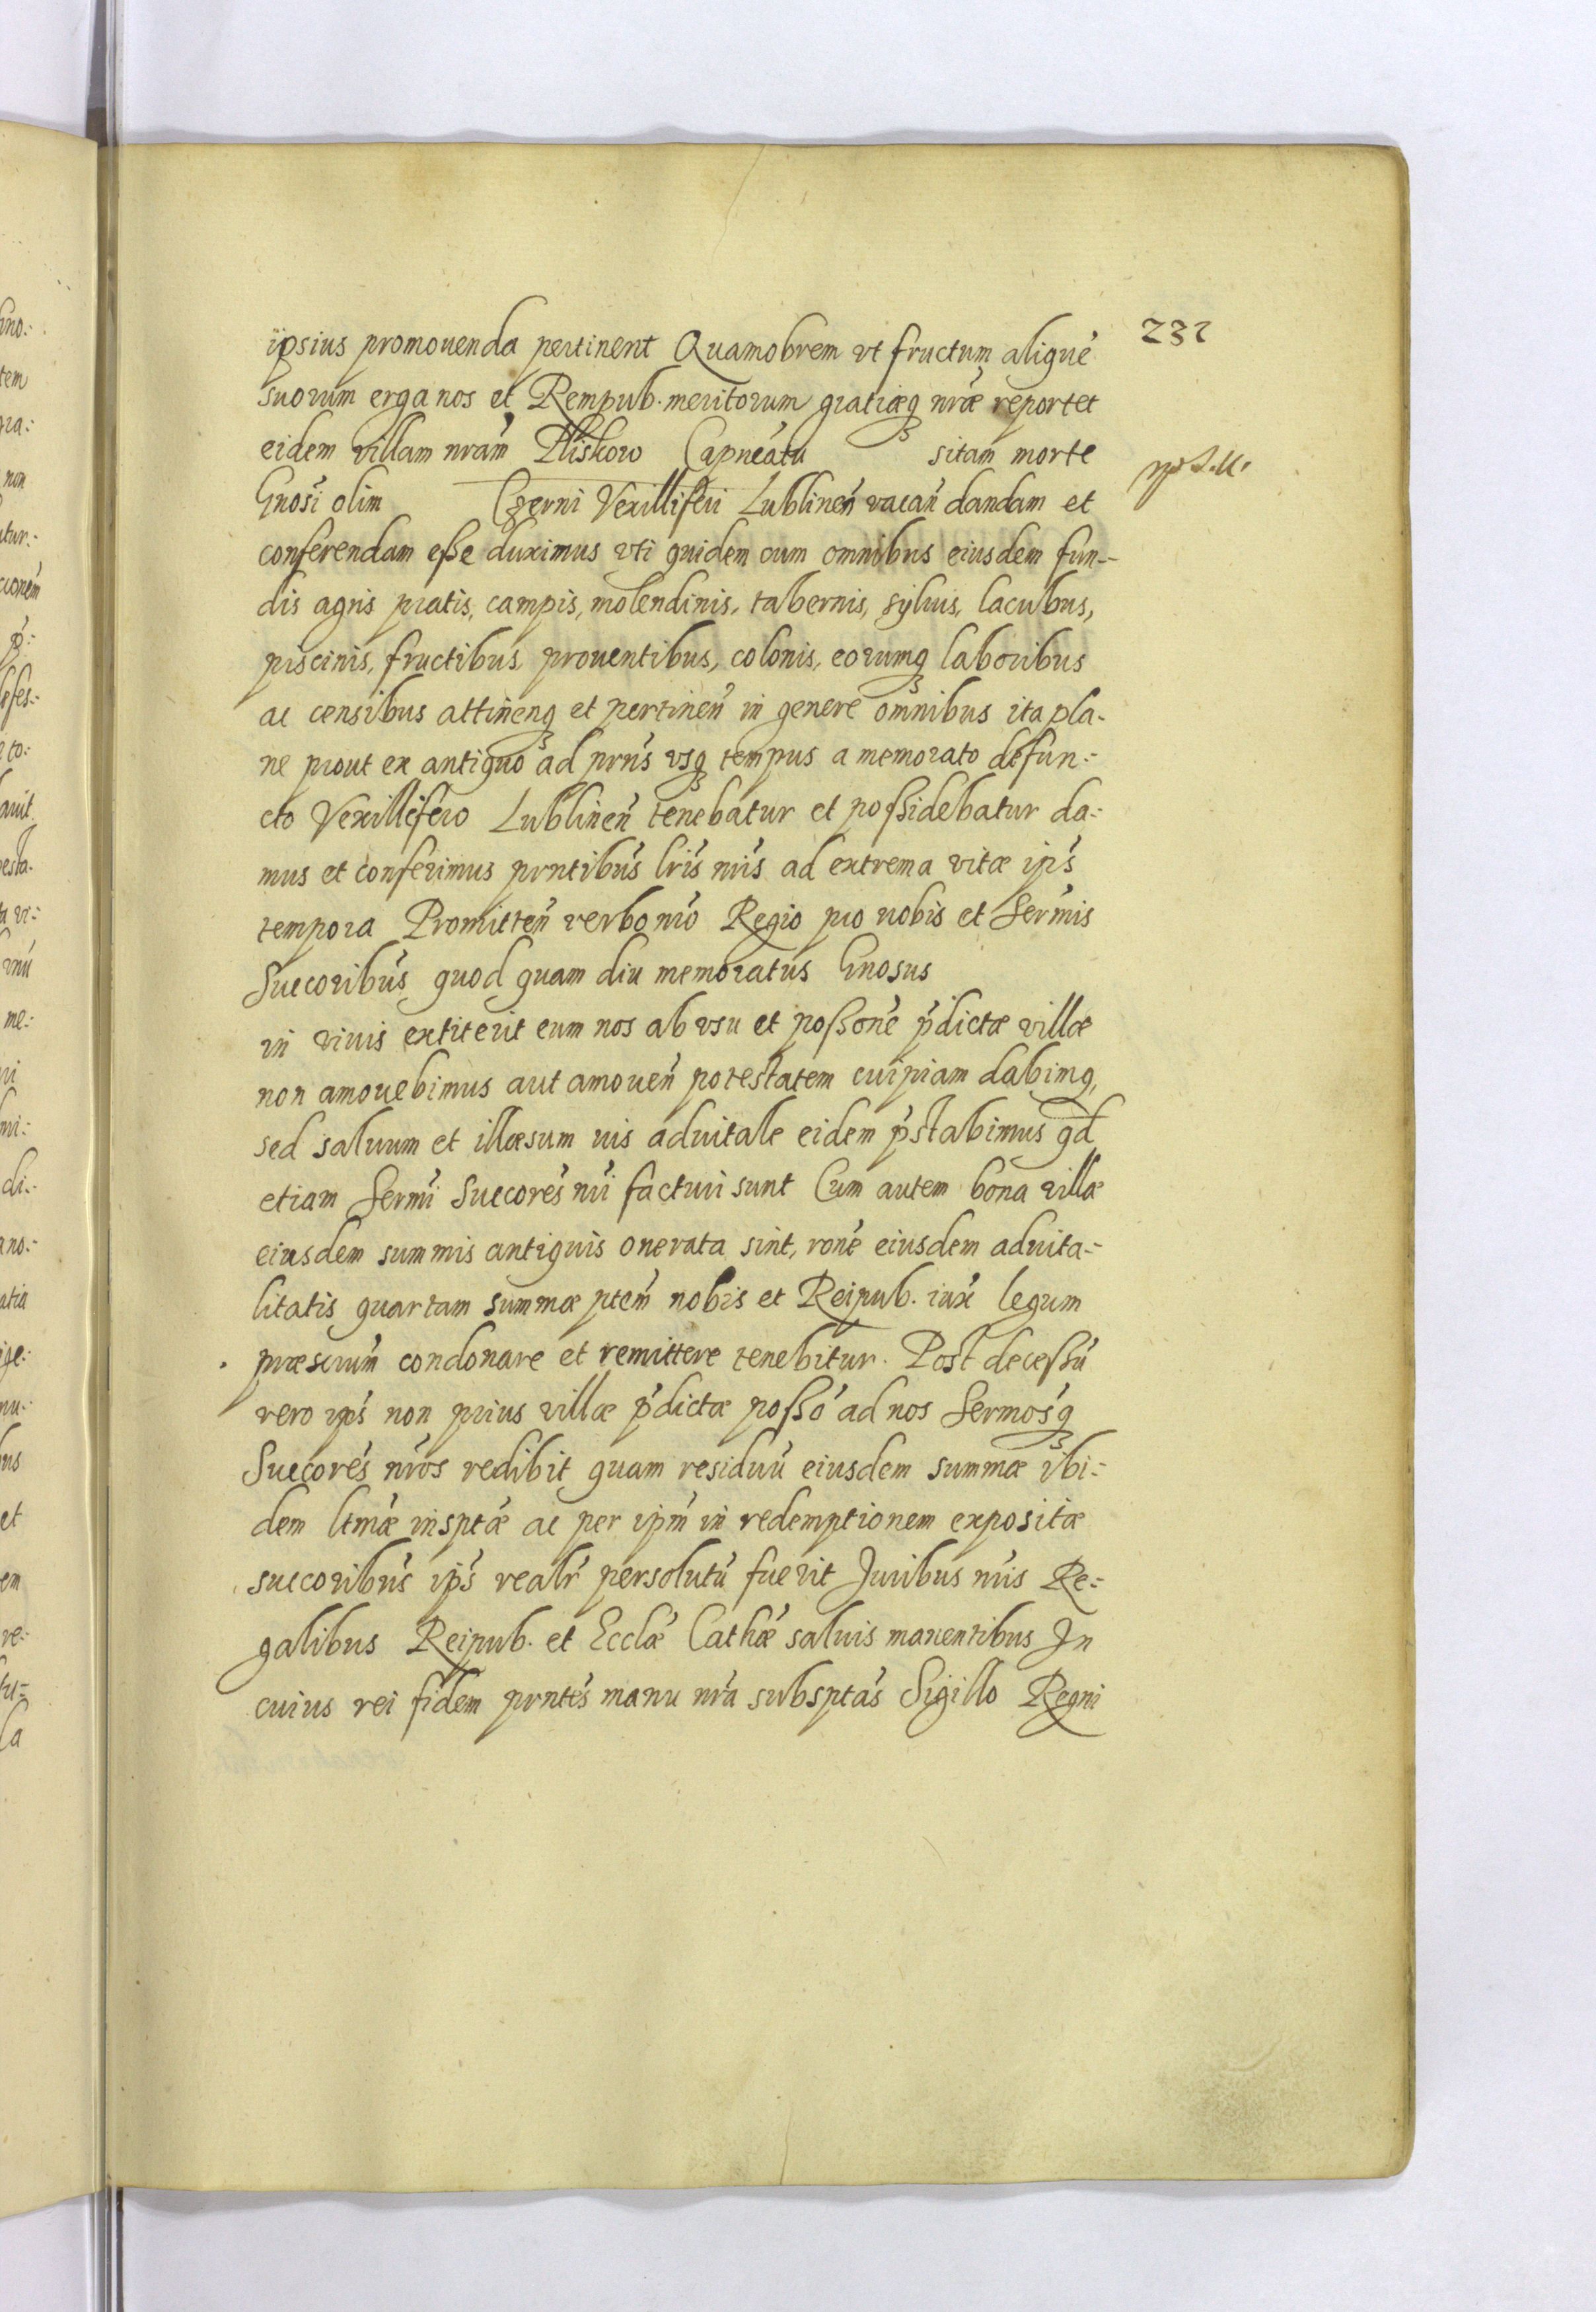 232
ipsius promouenda pertinent Quamobrem vt fructum aliquē
suorum erga nos et Rempub. meritorum gratiæq nræ reportet
eidem villam nrām Pliskow Capneātu sitam morte
Gnosi olim Czerni Vexilliferi Lublineñ vacañ dandam et
conferendam eße duximus vti quidem cum omnibus eiusdem fun-
dis agris pratis, campis, molendinis, tabernis, syluis, lacubus,
piscinis, fructibus, prouentibus, colonis, eorumq laboribus
ac censibus attinenq et pertineñ in genere omnibus ita pla-
ne prout ex antiquo ad prns vsq tempus a memorato defun-
cto Vexillifero Lublineñ tenebatur et poßidebatur da-
mus et conferimus prntibus lris nris ad extrema vitæ ips
tempora Promitteñ verbo nro Regio pro nobis et Sermis
Succoribus quod quam diu memoratus Gnosus
in viuis extiterit eum nos ab vsu et poßone pdictæ villæ
non amouebimus aut amoueñ potestatem cuipiam dabimq,
sed saluum et illæsum uis aduitale eidem pstabimus qd
etiam Sermi Succores nri facturi sunt Cum autem bona villæ
eiusdem summis antiquis onerata sint, rone eiusdem aduita-
litatis quartam summæ ptem nobis et Reipub. iux legum
præscrum condonare et remittere tenebitur. Post deceßū
vero ips non prius villæ pdictæ poßo ad nos Sermosq
Succores nros redibit quam residuū eiusdem summæ ibi-
dem ltmæ insptæ ac per ipm in redemptionem expositæ
succoribus ips realr persolutū fuerit Juribus nris Re-
galibus Reipub. et Ecclæ Cathæ saluis manentibus In
cuius rei fidem prntes manu nra subsptas Sigillo Regni